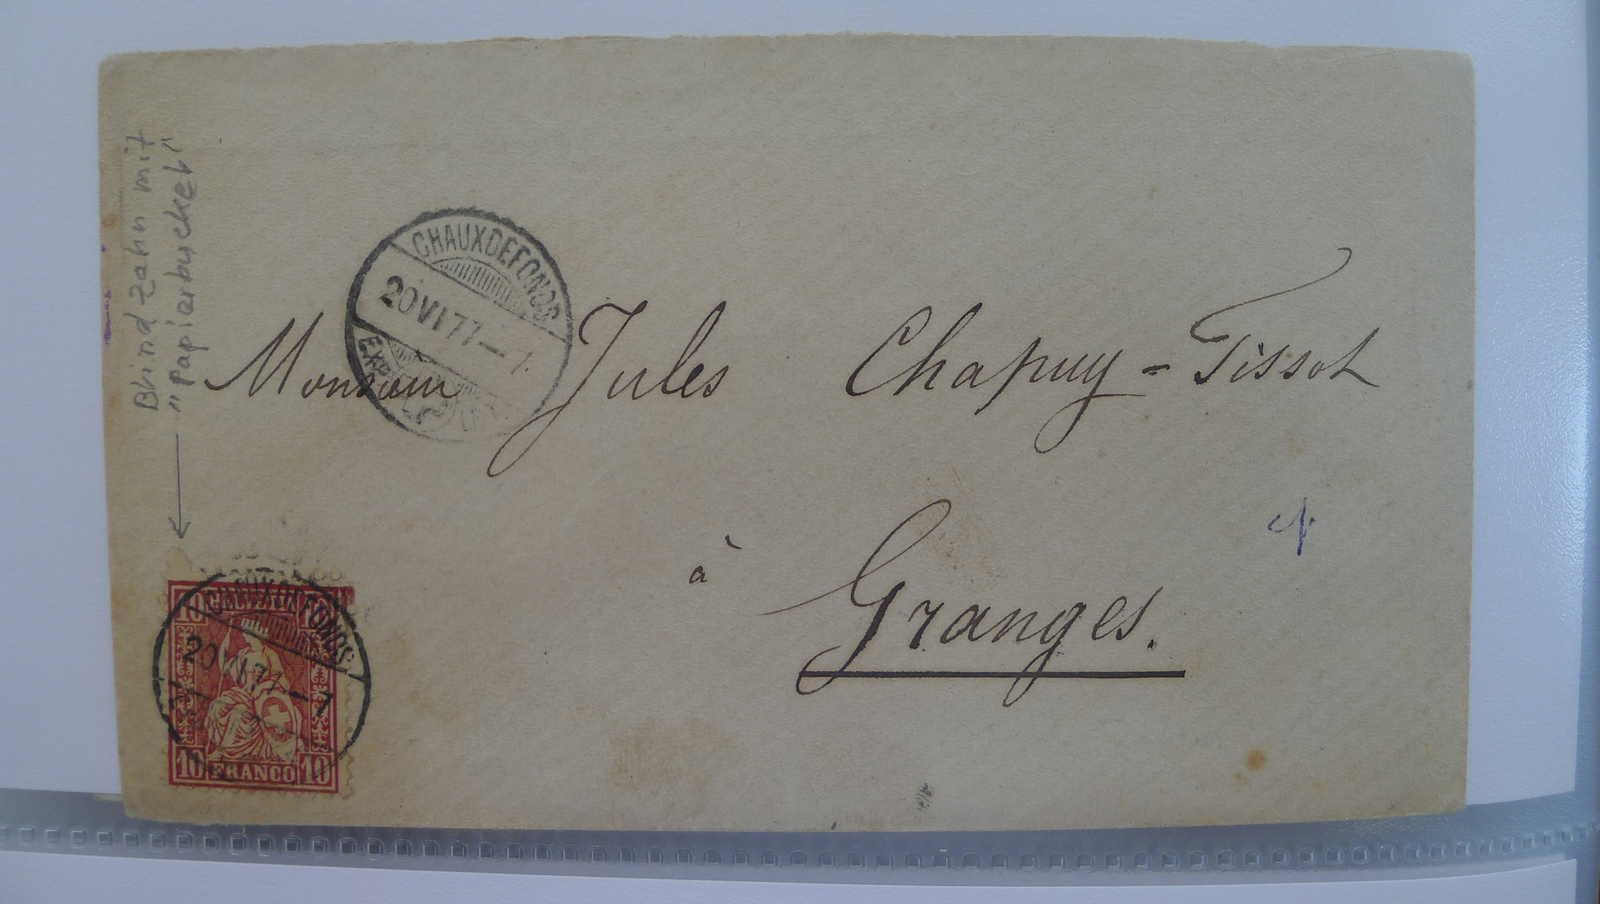 Blindzahn mit
"Papierbuckel"
CHAUXDEFONDS
20 VI 77 — 7.
Monsieur Jules Chapuy=Tissot
à
Granges.
10 HELVETIA 10
CHAUXDEFONDS
20 VI 77 — 7
10 FRANCO 10